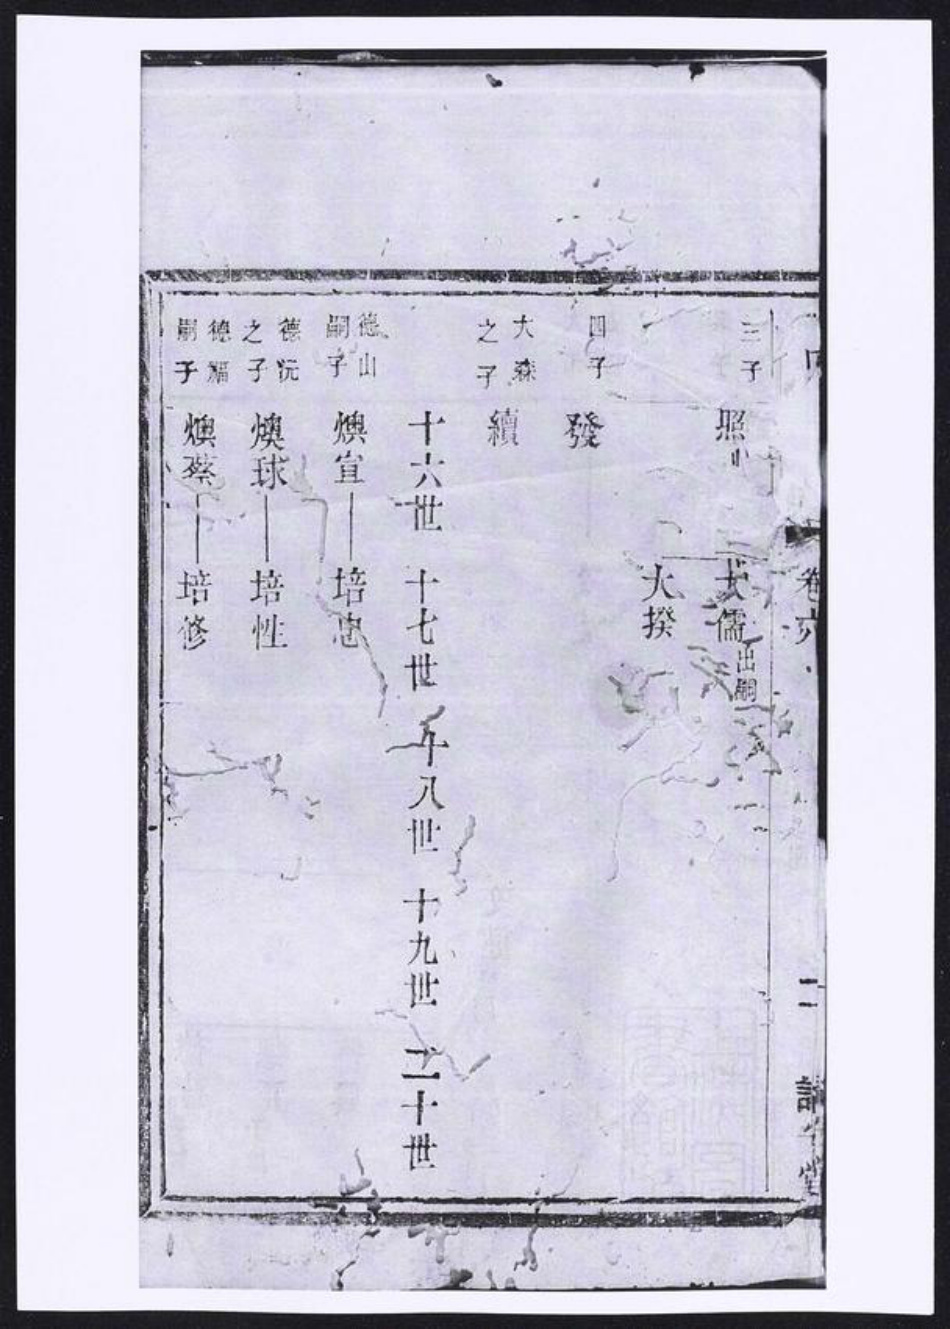 卷六
二
三子
照
大儒出嗣
大揆
四子
發
大森
之子
續
十六世 十七世 十八世 十九世 二十世
德山
嗣子
燠宣 培忠
德沅
之子
燠球 培性
德福
嗣子
燠蔡 培修